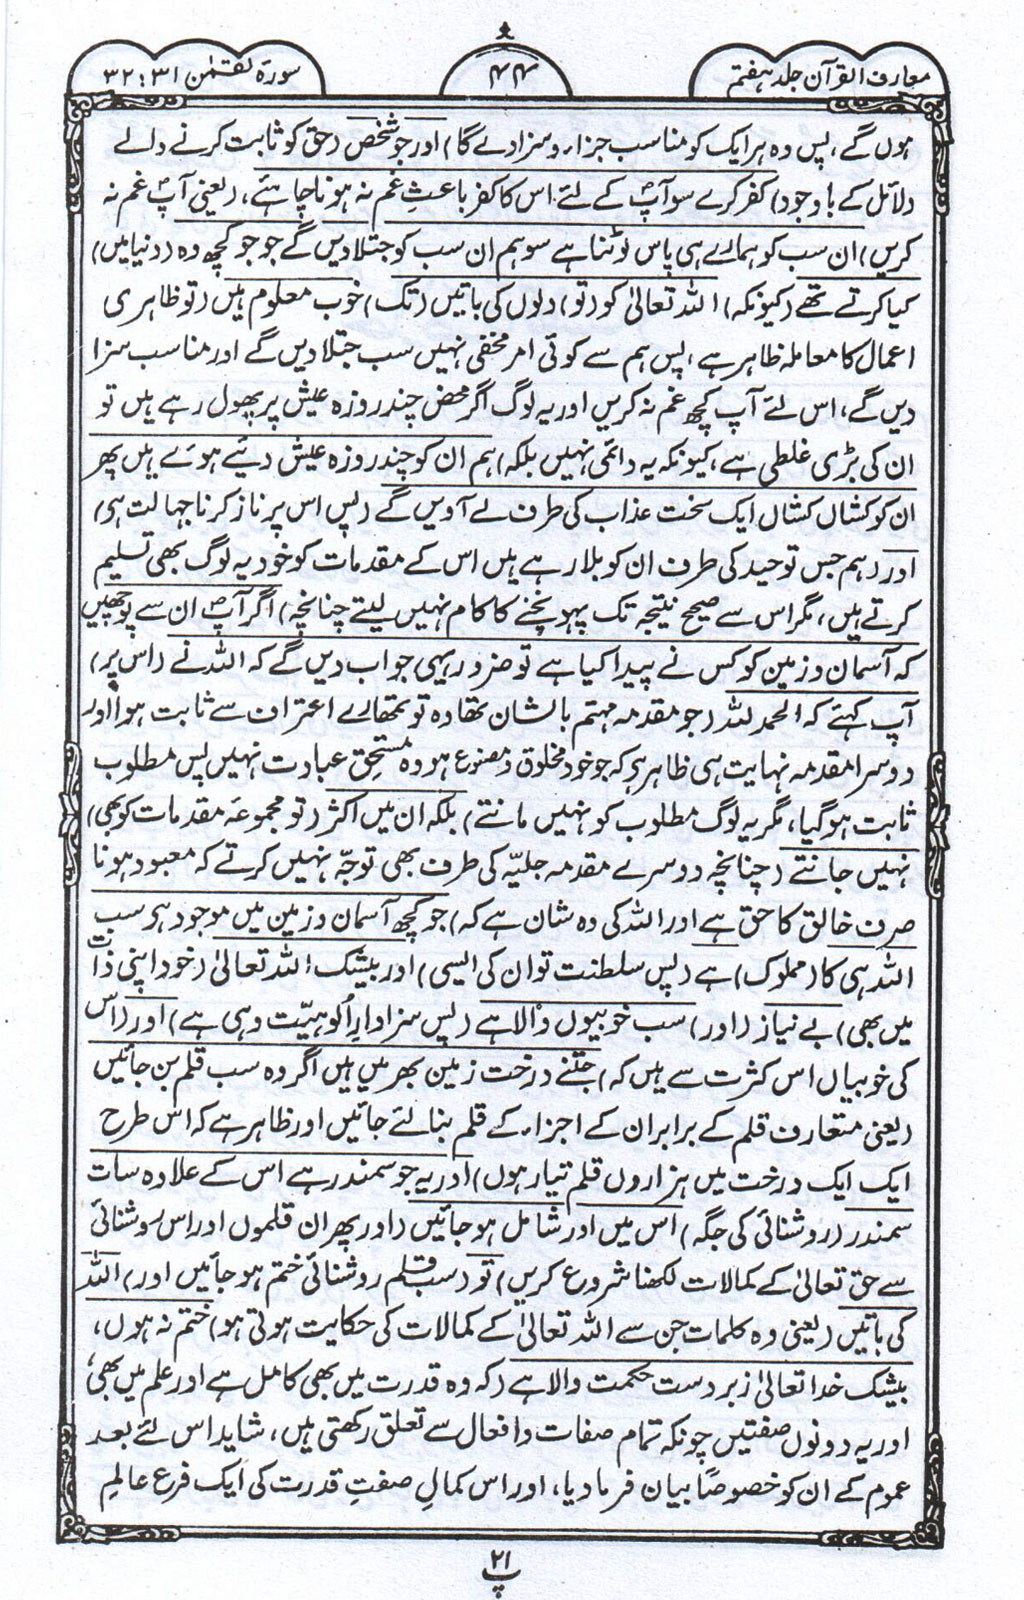 معارف القرآن جلد ہفتم
۴۴
سورۃ لقمٰن ۳۱ : ۳۲
ہوں گے، پس وہ ہر ایک کو مناسب جزاء و سزا دے گا) اور جو شخص (حق کو ثابت کرنے والے
دلائل کے باوجود) کفر کرے سو آپؐ کے لئے اس کا کفر باعثِ غم نہ ہونا چاہئے، (یعنی آپؐ غم نہ
کریں) ان سب کو ہمارے ہی پاس لوٹنا ہے سو ہم ان سب کو جتلادیں گے جو جو کچھ وہ (دنیا میں)
کیا کرتے تھے (کیونکہ) اللہ تعالیٰ کو (تو) دلوں کی باتیں (تک) خوب معلوم ہیں (تو ظاہری
اعمال کا معاملہ ظاہر ہے، پس ہم سے کوئی امر مخفی نہیں سب جتلادیں گے اور مناسب سزا
دیں گے، اس لئے آپ کچھ غم نہ کریں اور یہ لوگ اگر محض چند روزہ عیش پر پھول رہے ہیں تو
ان کی بڑی غلطی ہے، کیونکہ یہ دائمی نہیں بلکہ) ہم ان کو چند روزہ عیش دیئے ہوئے ہیں پھر
ان کو کشاں کشاں ایک سخت عذاب کی طرف لے آویں گے (پس اس پر ناز کرنا جہالت ہی)
اور (ہم جس توحید کی طرف ان کو بلا رہے ہیں اس کے مقدمات کو خود یہ لوگ بھی تسلیم
کرتے ہیں، مگر اس سے صحیح نتیجہ تک پہونچنے کا کام نہیں لیتے چنانچہ) اگر آپؐ ان سے پوچھیں
کہ آسمان و زمین کو کس نے پیدا کیا ہے تو ضرور یہی جواب دیں گے کہ اللہ نے (اس پر)
آپ کہئے کہ الحمد للہ (جو مقدمہ مہتم بالشان تھا وہ تو تمھارے اعتراف سے ثابت ہوا اور
دوسرا مقدمہ نہایت ہی ظاہر ہی کہ جو خود مخلوق و مصنوع ہو وہ مستحق عبادت نہیں پس مطلوب
ثابت ہوگیا، مگر یہ لوگ مطلوب کو نہیں مانتے) بلکہ ان میں اکثر (تو مجموعۂ مقدمات کو بھی)
نہیں جانتے (چنانچہ دوسرے مقدمہ جلیّہ کی طرف بھی توجّہ نہیں کرتے کہ معبود ہونا
صرف خالق کا حق ہے اور اللہ کی وہ شان ہے کہ) جو کچھ آسمان و زمین میں موجود ہی سب
اللہ ہی کا (مملوک) ہے (پس سلطنت تو ان کی ایسی) اور بیشک اللہ تعالیٰ (خود اپنی ذات
میں بھی) بے نیاز (اور) سب خوبیوں والا ہے (پس سزاوارِ اُلوہیّت وہی ہے) اور (اس
کی خوبیاں اس کثرت سے ہیں کہ) جتنے درخت زمین بھر میں ہیں اگر وہ سب قلم بن جائیں
(یعنی متعارف قلم کے برابر ان کے اجزاء کے قلم بنالئے جائیں اور ظاہر ہے کہ اس طرح
ایک ایک درخت میں ہزاروں قلم تیار ہوں) اور یہ جو سمندر ہے اس کے علاوہ سات
سمندر (روشنائی کی جگہ) اس میں اور شامل ہو جائیں (اور پھر ان قلموں اور اس روشنائی
سے حق تعالیٰ کے کمالات لکھنا شروع کریں) تو (سب قلم روشنائی ختم ہو جائیں اور) اللہ
کی باتیں (یعنی وہ کلمات جن سے اللہ تعالیٰ کے کمالات کی حکایت ہوتی ہو) ختم نہ ہوں،
بیشک خدا تعالیٰ زبردست حکمت والا ہے (کہ وہ قدرت میں بھی کامل ہے اور علم میں بھی،
اور یہ دونوں صفتیں چونکہ تمام صفات و افعال سے تعلق رکھتی ہیں، شاید اس لئے بعد
عموم کے ان کو خصوصًا بیان فرمادیا، اور اس کمالِ صفتِ قدرت کی ایک فرع عالمِ
پ ۲۱